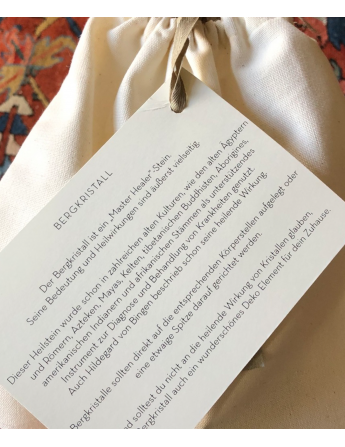 BERGKRISTALL
Der Bergkristall ist ein „Master Healer" Stein.
Seine Bedeutung und Heilwirkungen sind äußerst vielseitig.
Dieser Heilstein wurde schon in zahlreichen alten Kulturen, wie den alten Ägyptern
und Römern, Azteken, Mayas, Kelten, tibetanischen Buddhisten, Aborigines,
amerikanischen Indianern und afrikanischen Stämmen als unterstützendes
Instrument zur Diagnose und Behandlung von Krankheiten genutzt.
Auch Hildegard von Bingen beschrieb schon seine heilende Wirkung.
Bergkristalle sollten direkt auf die entsprechenden Körperstellen aufgelegt oder
eine etwaige Spitze darauf gerichtet werden.
nd solltest du nicht an die heilende Wirkung von Kristallen glauben,
Bergkristall auch ein wunderschönes Deko Element für dein Zuhause.